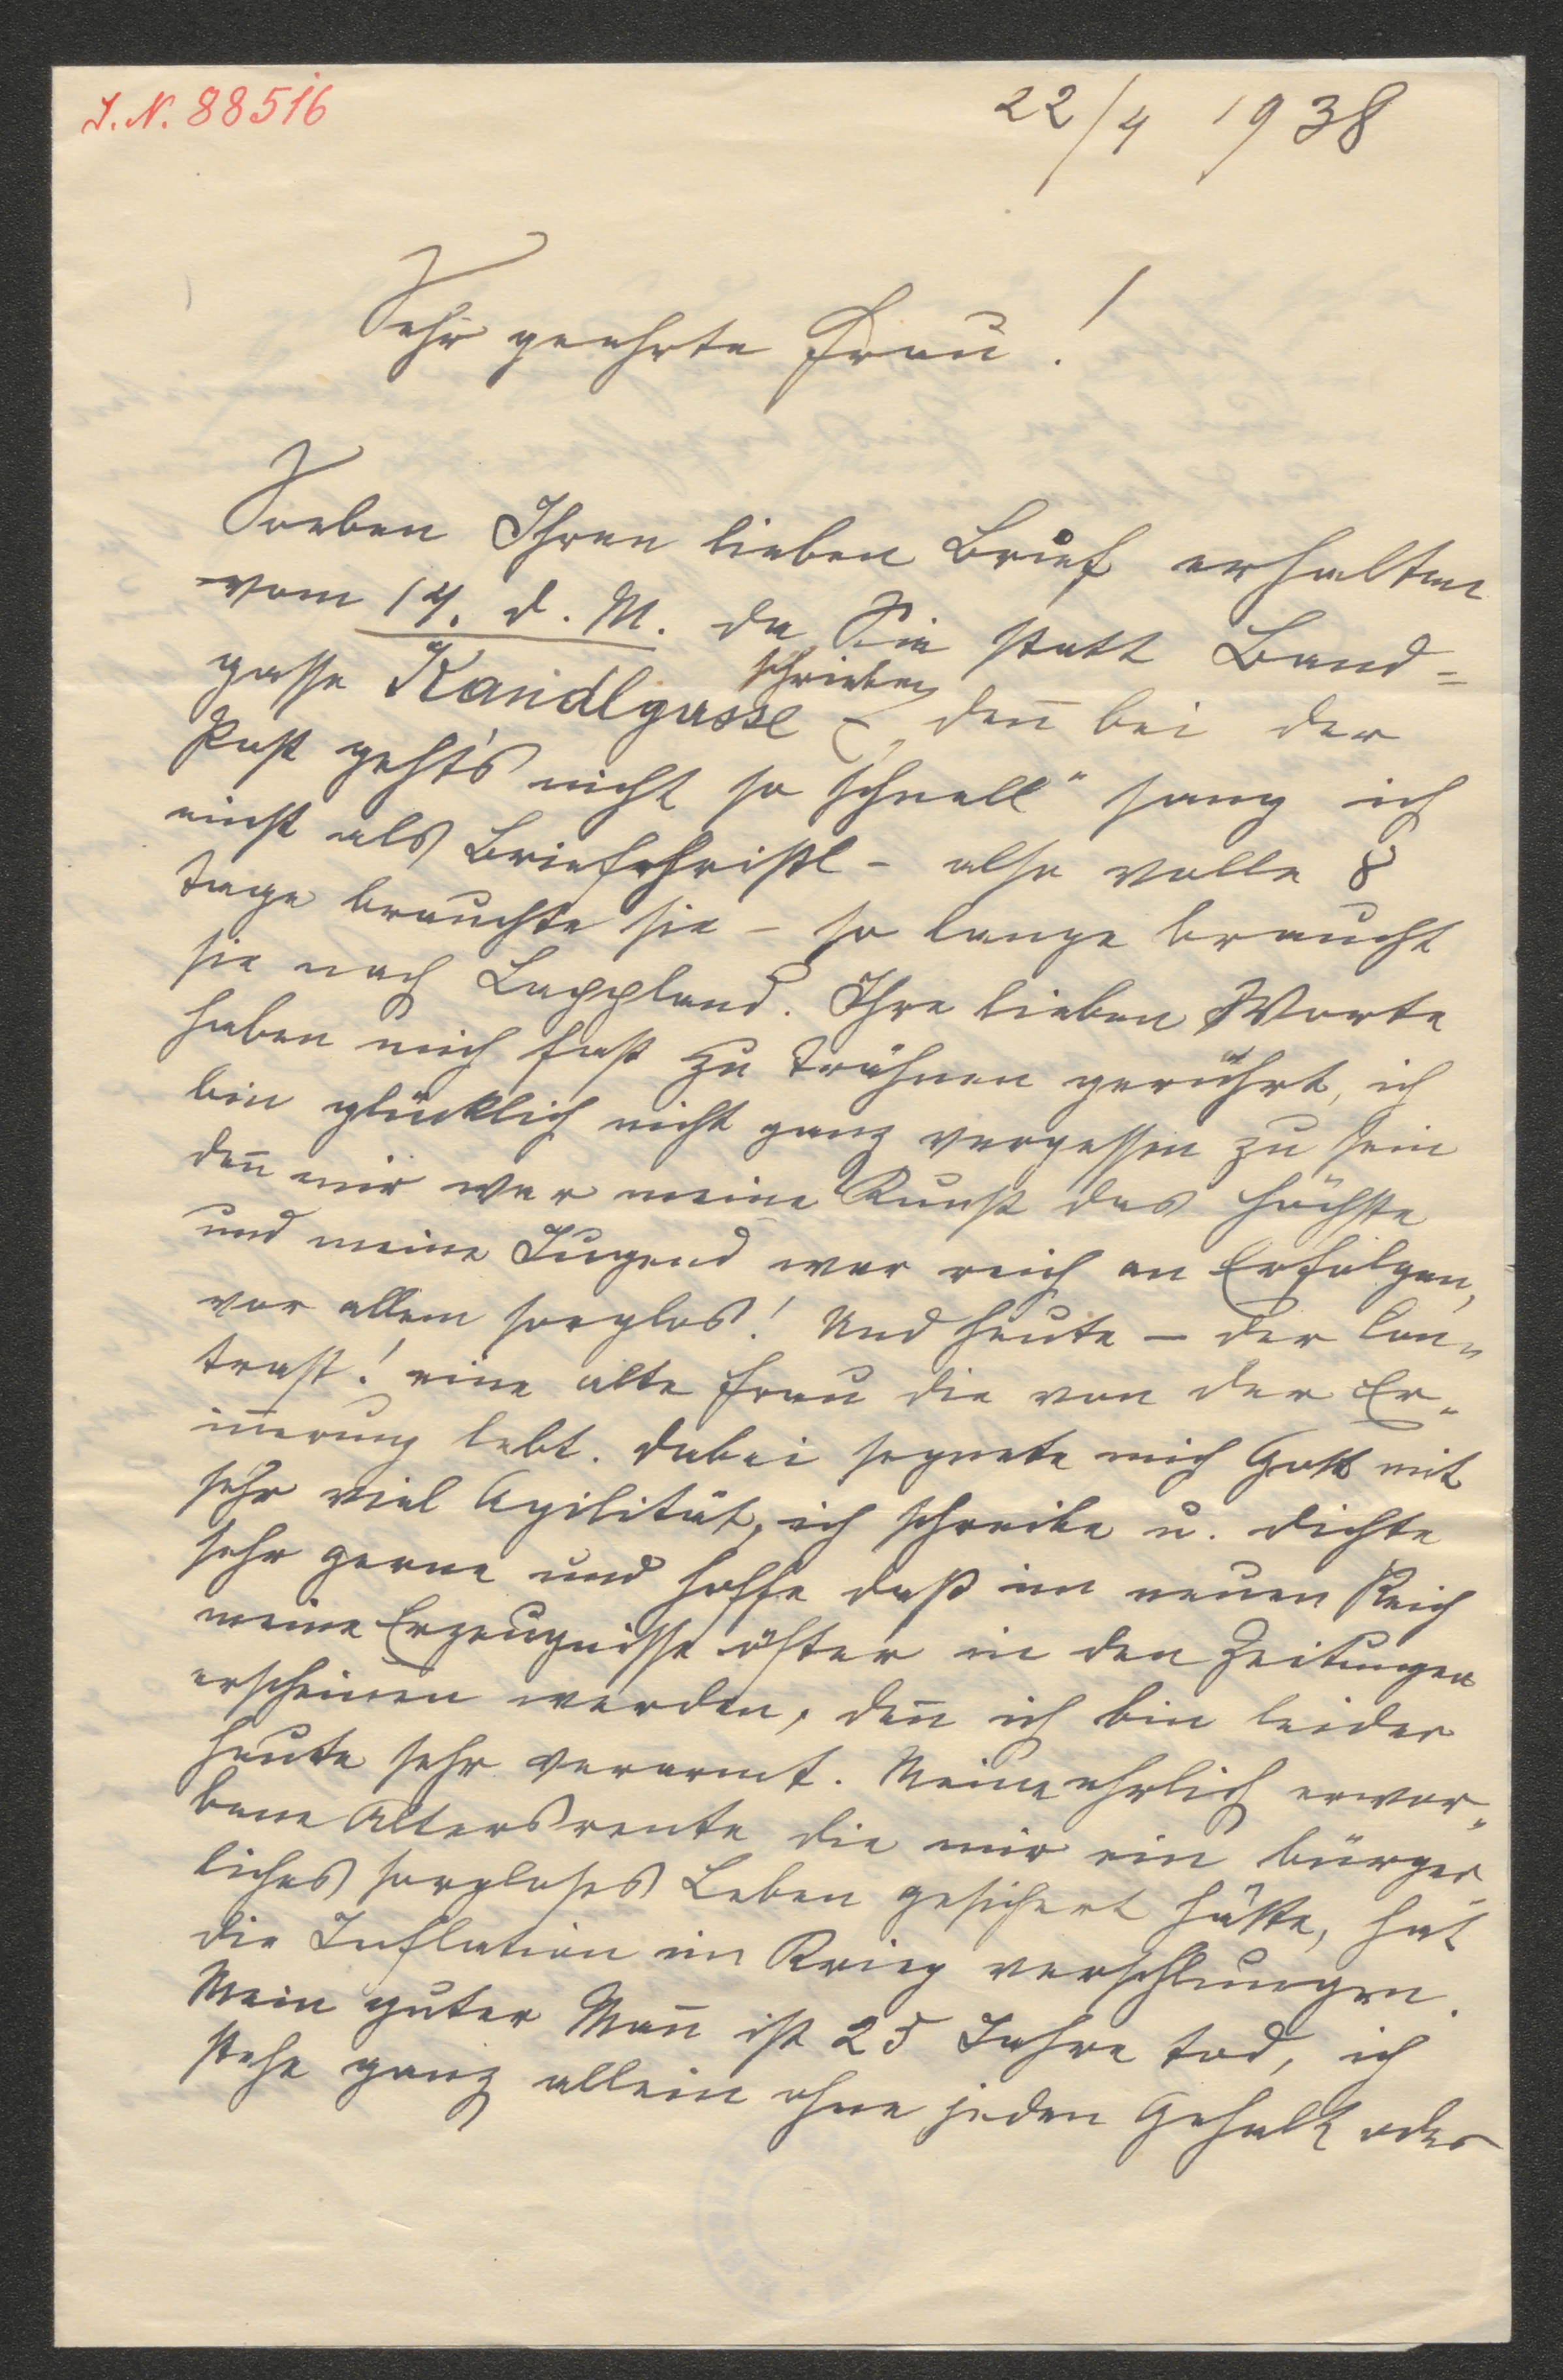 I. N. 88516
22/4 1938
Sehr geehrte Frau!
Soeben Ihren lieben Brief erhalten
vom 14. d. M. da Sie statt Band=
gasse Kandlgasse schrieben „den̄ bei der
Post geht's nicht so schnell" sang ich
einst als Briefchristl – also volle 8
Tage brauchte sie – so lange braucht
sie nach Lappland. Ihre lieben Worte
haben mich fast zu Trähnen gerührt, ich
bin glücklich nicht ganz vergessen zu sein
den̄ mir war meine Kunst das höchste
und meine Jugend war reich an Erfolgen,
vor allem sorglos! Und heute – der Con=
trast! eine alte Frau die von der Er=
in̄erung lebt. Dabei segnete mich Gott mit
sehr viel Agilität, ich schreibe u. dichte
sehr gerne und hoffe daß im neuen Reich
meine Erzeugnisse öfter in den Zeitungen
erscheinen werden, den̄ ich bin leider
heute sehr verarmt. Meine ehrlich erwor=
bene Altersrente die mir ein bürger=
liches sorgloses Leben gesichert hätte, hat
die Inflation im Krieg verschlungen.
Mein guter Man̄ ist 25 Jahre tod, ich
stehe ganz allein ohne jeden Gehalt oder